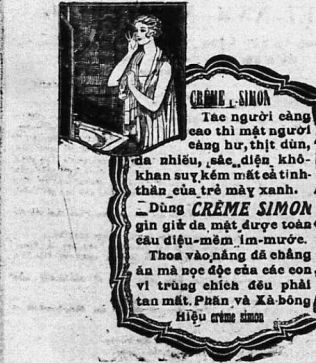 CRÈME L. SIMON
Tác người càng
cao thì mặt người
càng hư, thịt dùn,
da nhiều, sắc diện khô-
khan suy kém mất cả tinh-
thần của trẻ mày xanh.
Dùng CRÈME SIMON
gìn giữ da mặt được toàn
câu diệu-mềm im-mước.
Thoa vào nắng đã chẳng
ăn mà nọc độc của các con
vi trùng chích đều phải
tan mất. Phấn và Xà-bông
Hiệu crème simon